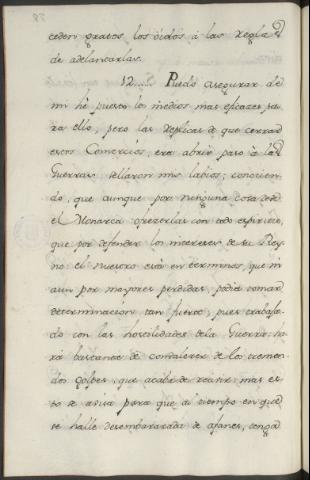 ceden gratos los oidos à las regla d
de adelantarlas.
12..... Puedo asegurar de
mi hè puesto los medios mas eficazes pa
ra ello, pero las replicas de que cerrar
esos Comercios, era abrir paso à las
Guerras, sellaron mis labios; conocien-
do, que aunque por ninguna cosa debe
el Monarca ofrezerlas con todo espiritu,
que por defender los intereses de su Rey-
no: el nuestro està en terminos, que ni
aun por mayores perdidas, podia tomar
determinacion tan fuerte; pues trabaja-
do con las hostilidades de la Guerra, ha-
rà bastante de convalezer de los tremen-
dos golpes, que acaba de recivir: mas es-
to se avisa para que al tiempo en que
se halle desembarazada de afanes, tenga